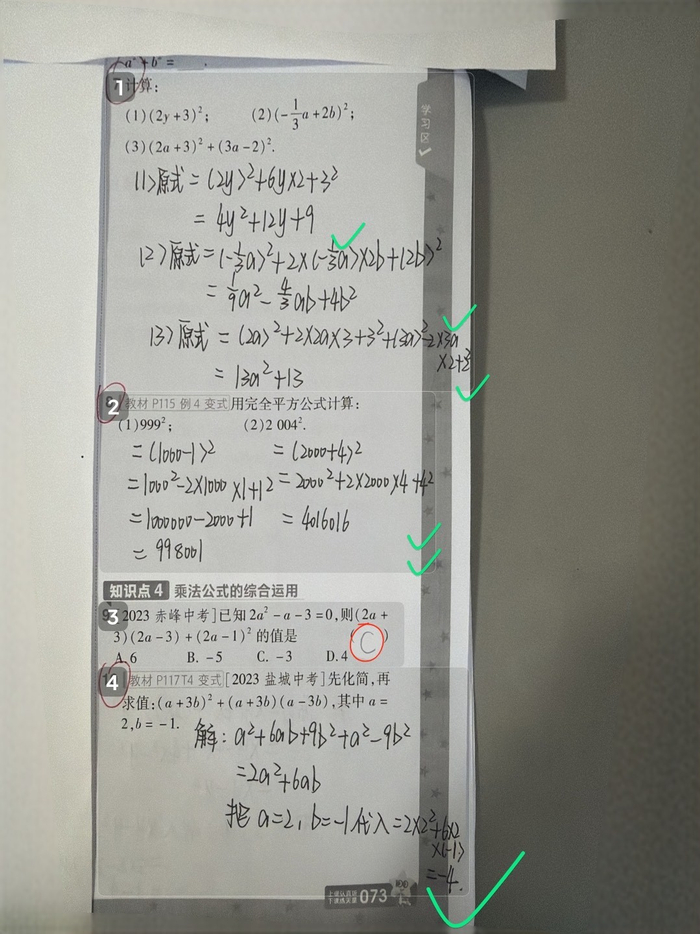 a²+b²=
1 计算:
(1)(2y+3)²; (2)(-1/3a+2b)²;
(3)(2a+3)²+(3a-2)².
(1)原式=(2y)²+6y×2+3²
=4y²+12y+9
(2)原式=(-1/3a)²+2×(-1/3a)×2b+(2b)²
=1/9a²-4/3ab+4b²
(3)原式=(2a)²+2×2a×3+3²+(3a)²-2×3a
×2+2²
=13a²+13
学习区
2 教材 P115 例 4 变式 用完全平方公式计算:
(1)999²; (2)2 004².
=(1000-1)² =(2000+4)²
=1000²-2×1000×1+1² =2000²+2×2000×4+4²
=1000000-2000+1 =4016016
=998001
知识点 4 乘法公式的综合运用
3 2023 赤峰中考]已知 2a²-a-3=0,则(2a+
3)(2a-3)+(2a-1)² 的值是 (C)
A.6 B.-5 C.-3 D.4
4 教材 P117T4 变式 [2023 盐城中考]先化简,再
求值:(a+3b)²+(a+3b)(a-3b),其中 a=
2,b=-1.
解:a²+6ab+9b²+a²-9b²
=2a²+6ab
把 a=2,b=-1代入=2×2²+6×2
×(-1)
=-4.
073